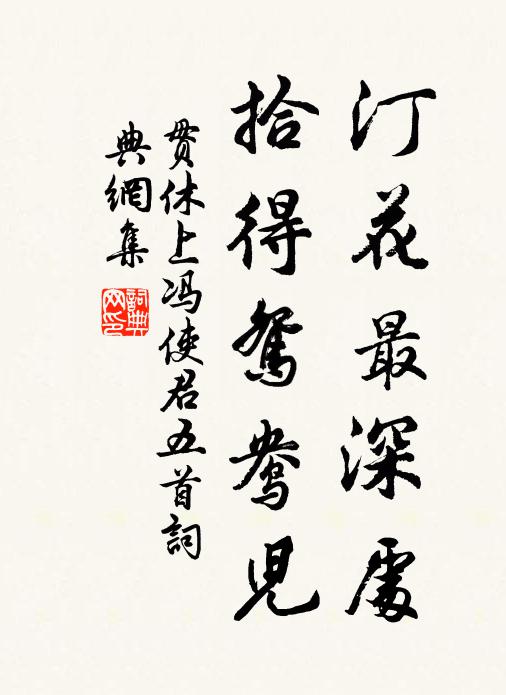 汀花最深處
拾得鴛鴦兒
贯休上冯使君五首詞
典網集
詞典網印